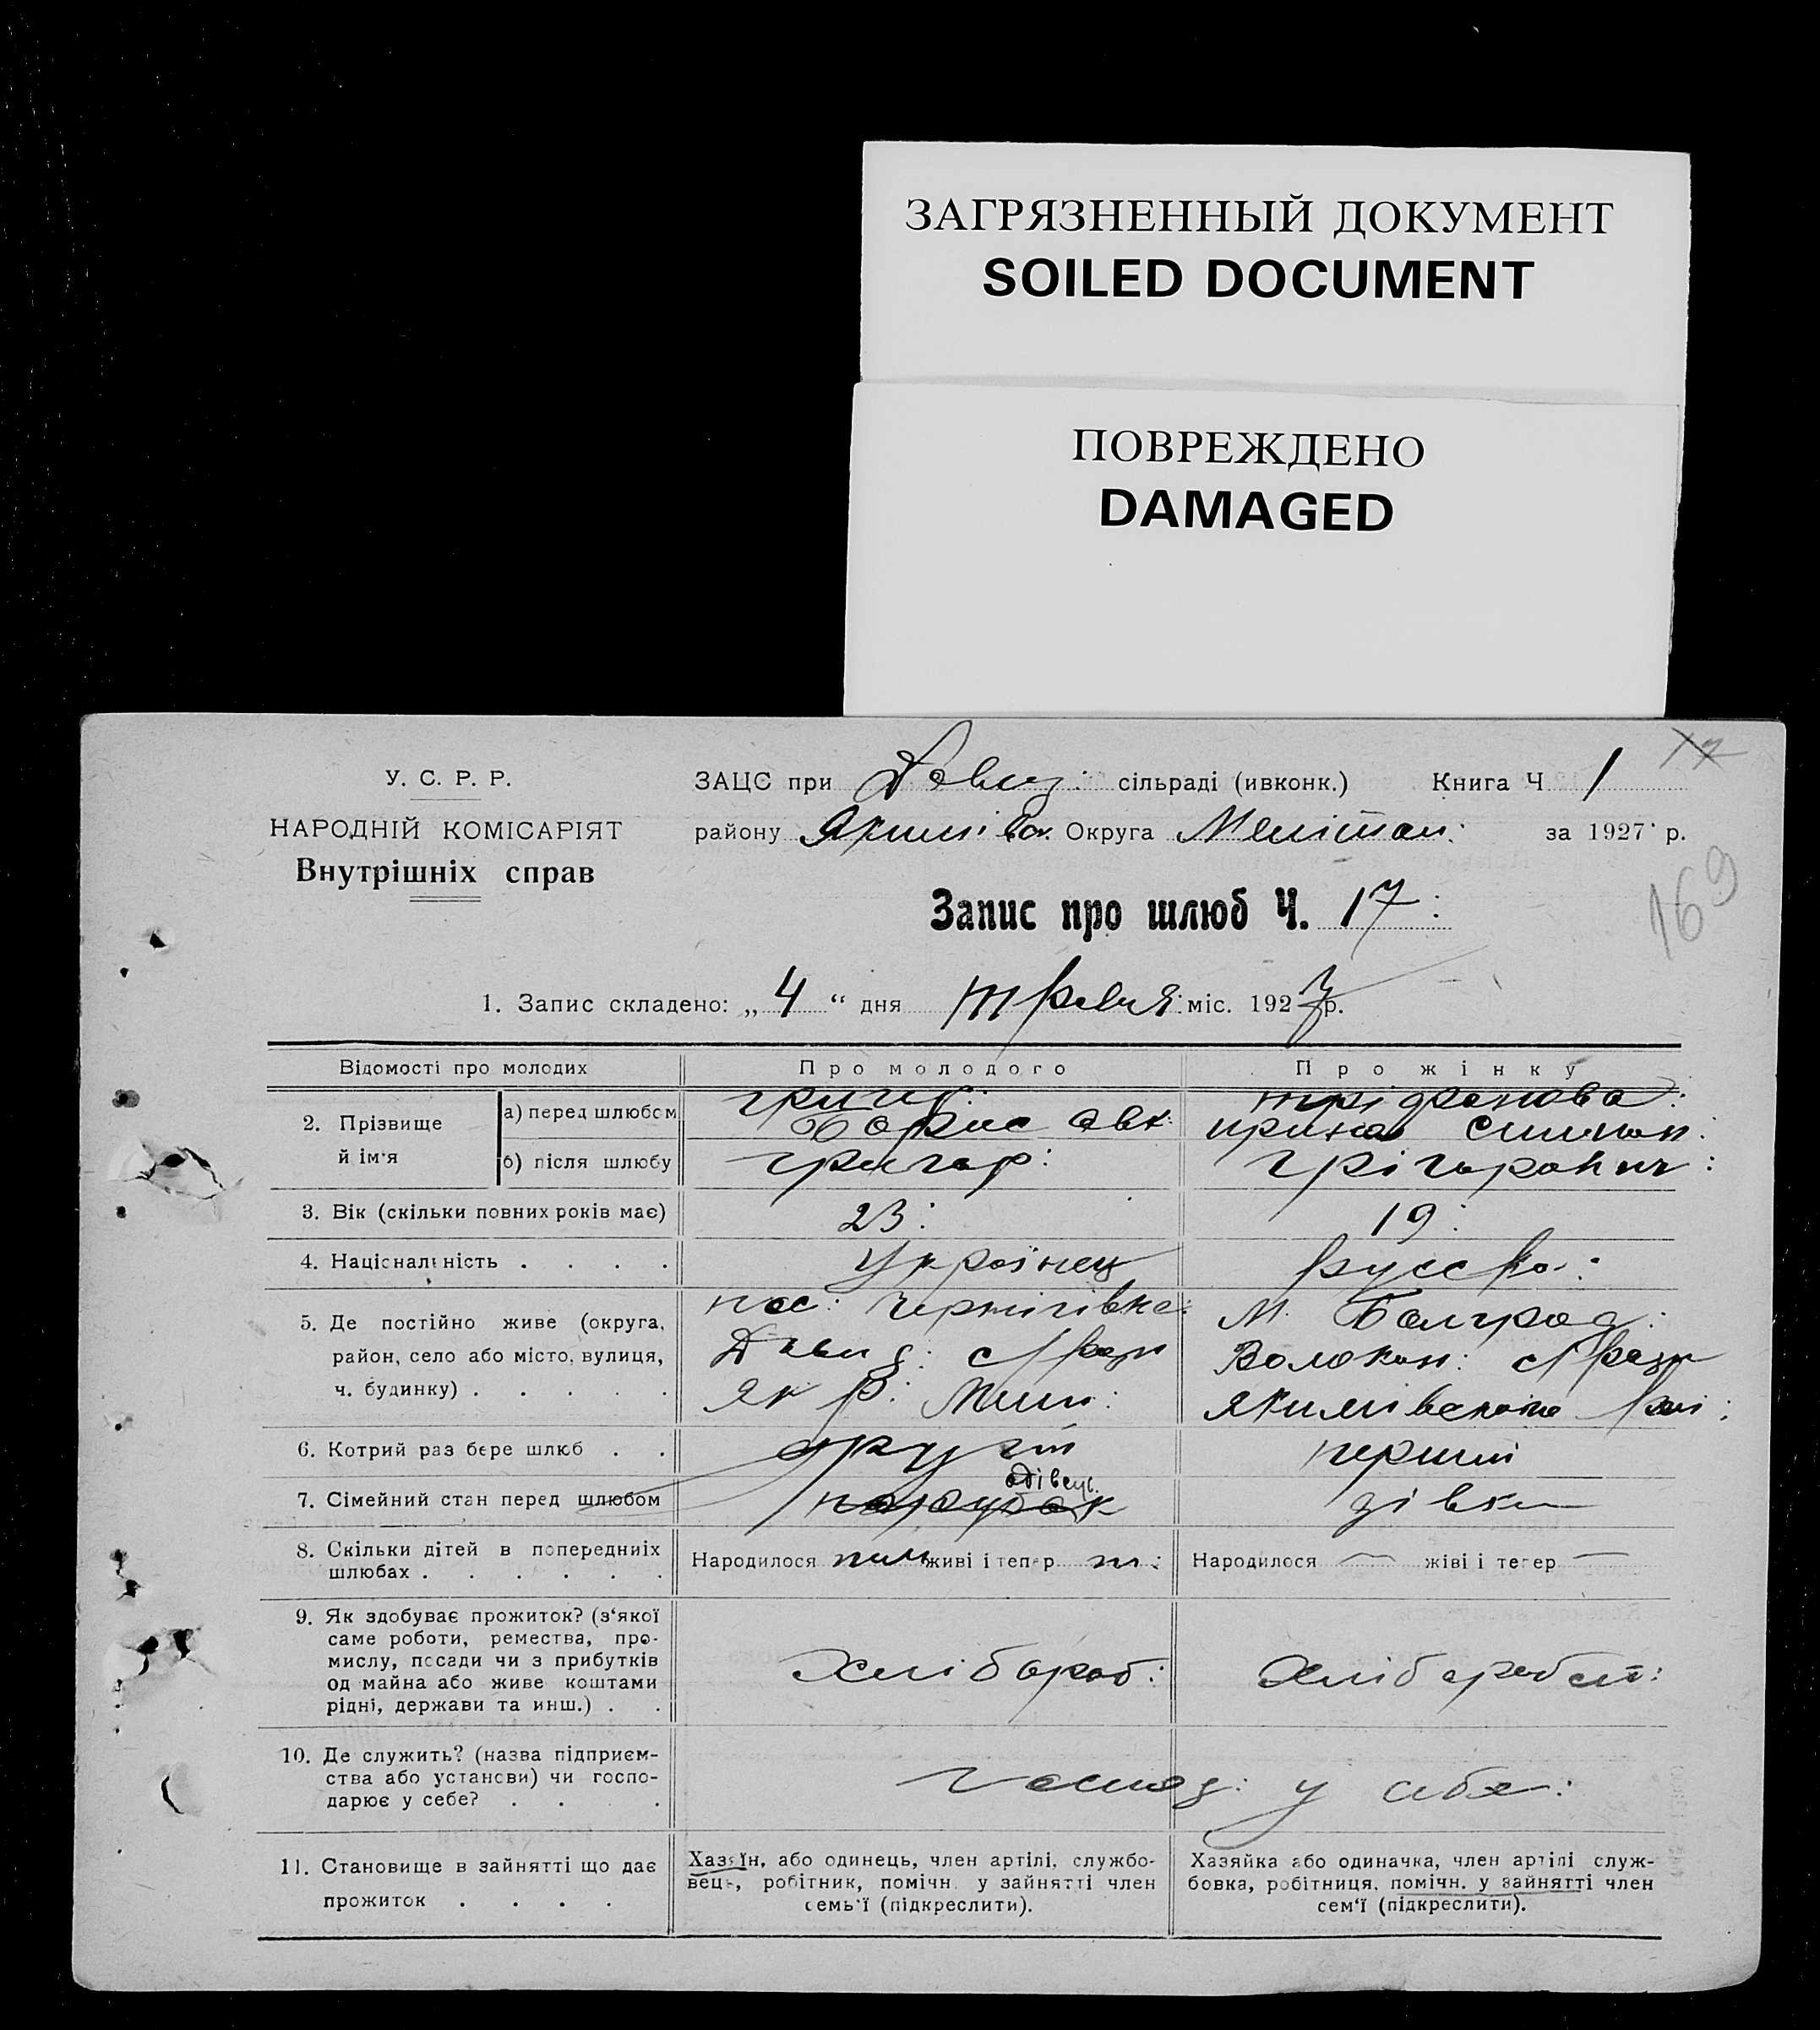 ЗАГРЯЗНЕННЫЙ ДОКУМЕНТ
SOILED DOCUMENT
ПОВРЕЖДЕНО
DAMAGED
У. С. Р. Р.
НАРОДНІЙ КОМІСАРІЯТ
Внутрішніх справ
ЗАЦС при сільраді (ивконк.) Книга Ч 1
району Якимів Округа Меліт за 1927 р.
169
Запис про шлюб Ч. 17
1. Запис складено: „4“ дня травня міс. 1927 р.
Відомості про молодих Про молодого Про жінку
2. Прізвище й ім'я
а) перед шлюбом
Борис
б) після шлюбу Григор:
3. Вік (скільки повних років має) 23: 19:
4. Національність . . . . Українец русска:
5. Де постійно живе (округа, район, село або місто, вулиця, ч. будинку) . . . . .
пос: Чернігівка:
Давид: с/ради
Як р:
М.
с/ради
Якимівського
6. Котрий раз бере шлюб . . другий перший
7. Сімейний стан перед шлюбом парубок удівець дівка
8. Скільки дітей в попередниіх шлюбах . . . . . .
Народилося живі і тепер
Народилося — жіві і тепер —
9. Як здобуває прожиток? (з'якої
саме роботи, ремества, про-
мислу, посади чи з прибутків
од майна або живе коштами
рідні, держави та инш.) . .
Хлібороб:
10. Де служить? (назва підприєм-
ства або установи) чи госпо-
дарює у себе? . . . .
господ: у себе:
11. Становище в зайнятті що дає
прожиток . . . .
Хазяїн, або одинець, член артілі, службо-
вець, робітник, помічн. у зайнятті член
семь'ї (підкреслити).
Хазяйка або одиначка, член артілі служ-
бовка, робітниця, помічн. у зайнятті член
сем'ї (підкреслити).